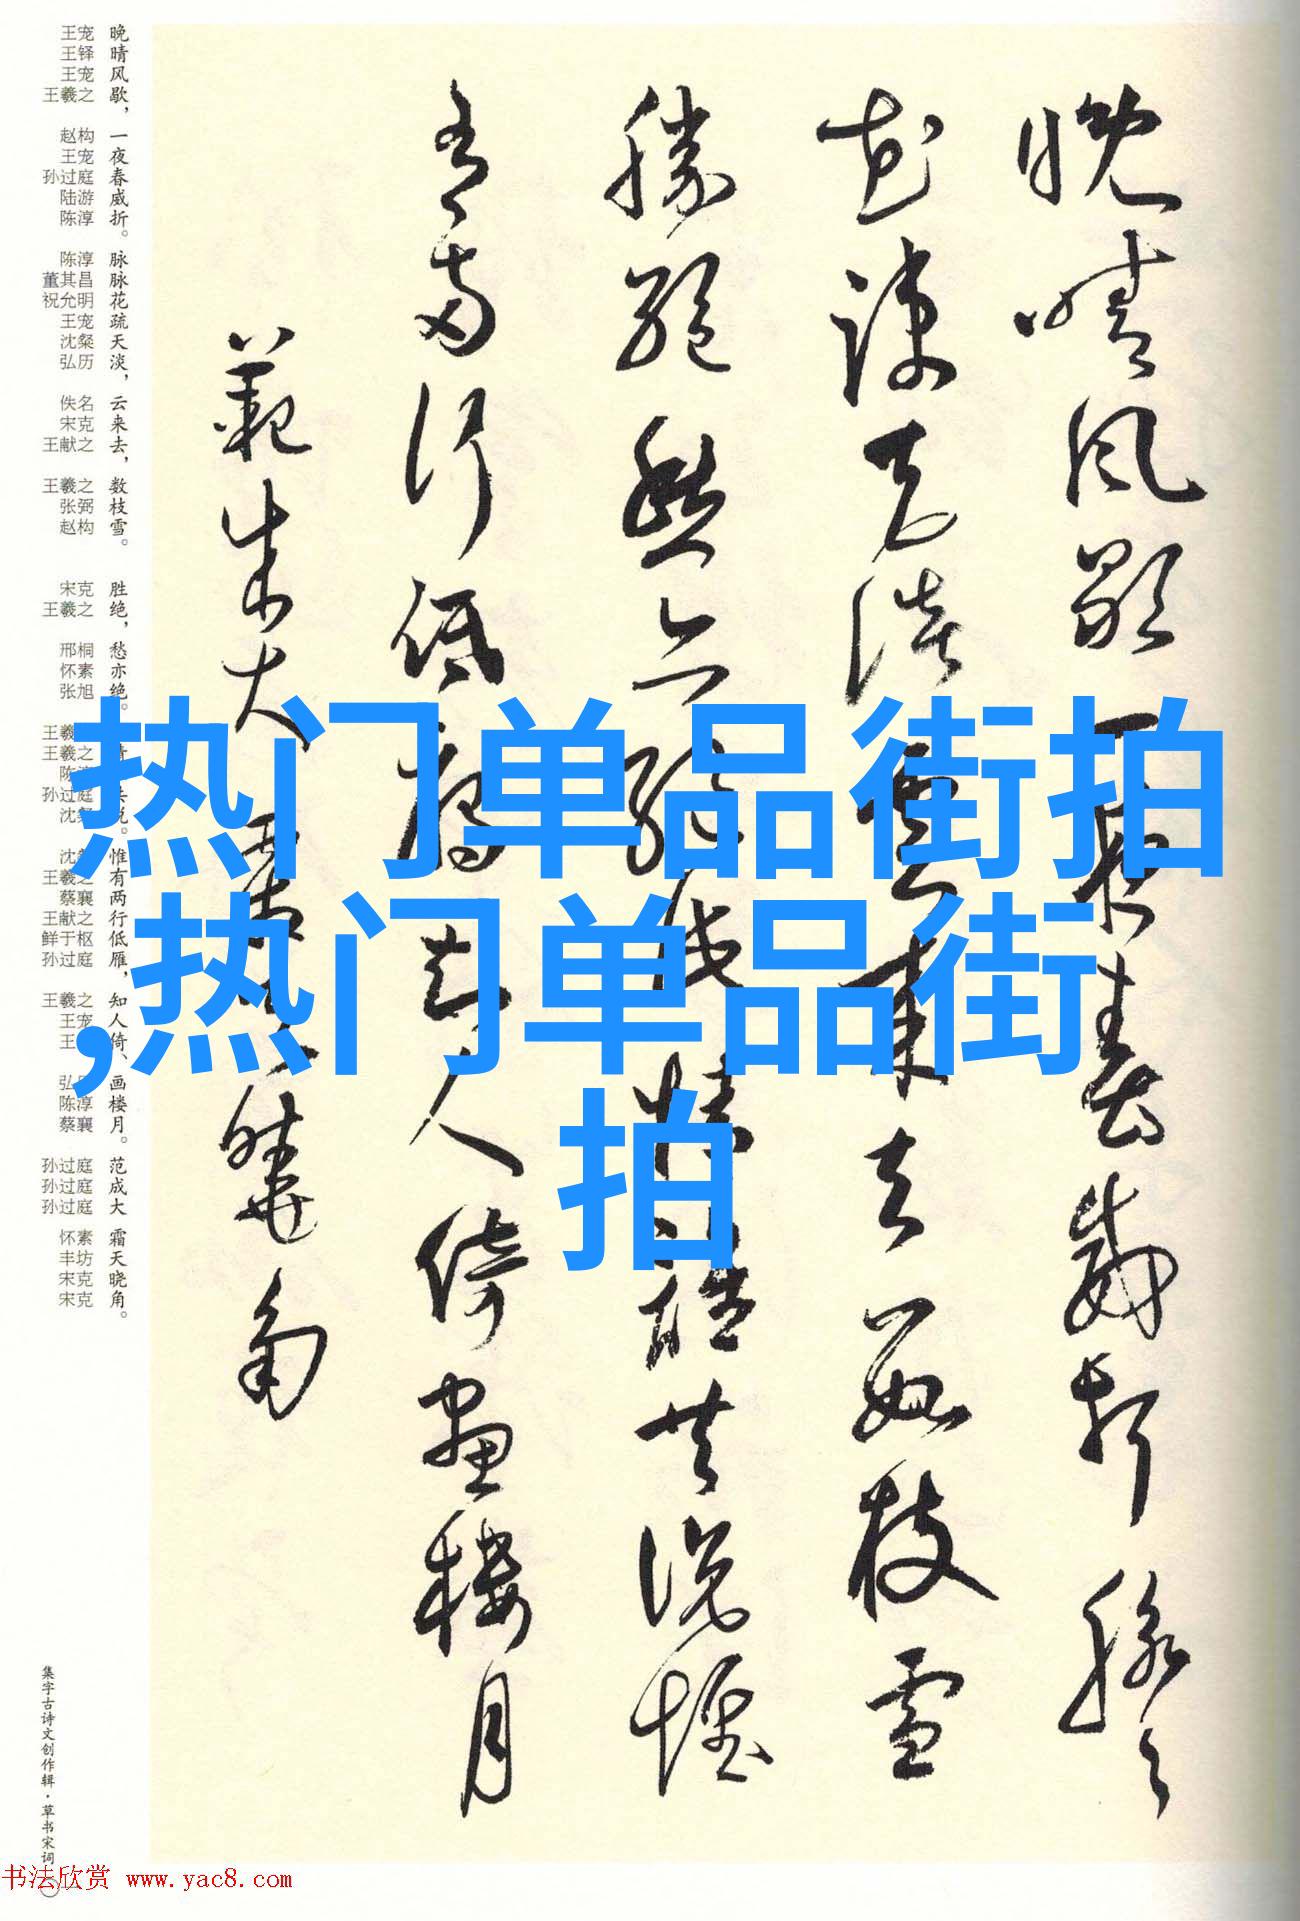 晚晴風歇一夜春威折脉々
花疎天淡雲來去數枝雪
勝絕愁亦絕此情誰共說惟
有兩行低雁知人倚畫樓月
范成大 霜天曉角
晚晴风歇，一夜春威折。脉脉花疏天淡，云来去，数枝雪。胜绝，愁亦绝。情共说。惟有两行低雁，知人倚、画楼月。范成大 霜天晓角。
王宠 王铎 王宠 王羲之 赵构 王宠 孙过庭 陆游 陈淳 陈淳 董其昌 祝允明 王宠 沈粲 弘历 佚名 宋克 王献之 王羲之 张弼 赵构 宋克 王羲之 邢桐 怀素 张旭 王羲 王羲之 陈淳 孙过庭 沈粲 沈 王羲之 蔡襄 王献之 鲜于枢 孙过庭 王羲之 王宠 王 弘历 陈淳 蔡襄 孙过庭 孙过庭 孙过庭 怀素 丰坊 宋克 宋克
集字古诗文创作辑·草书宋词
热门单品街拍
,热门单品街
拍
书法欣赏 www.yac8.com